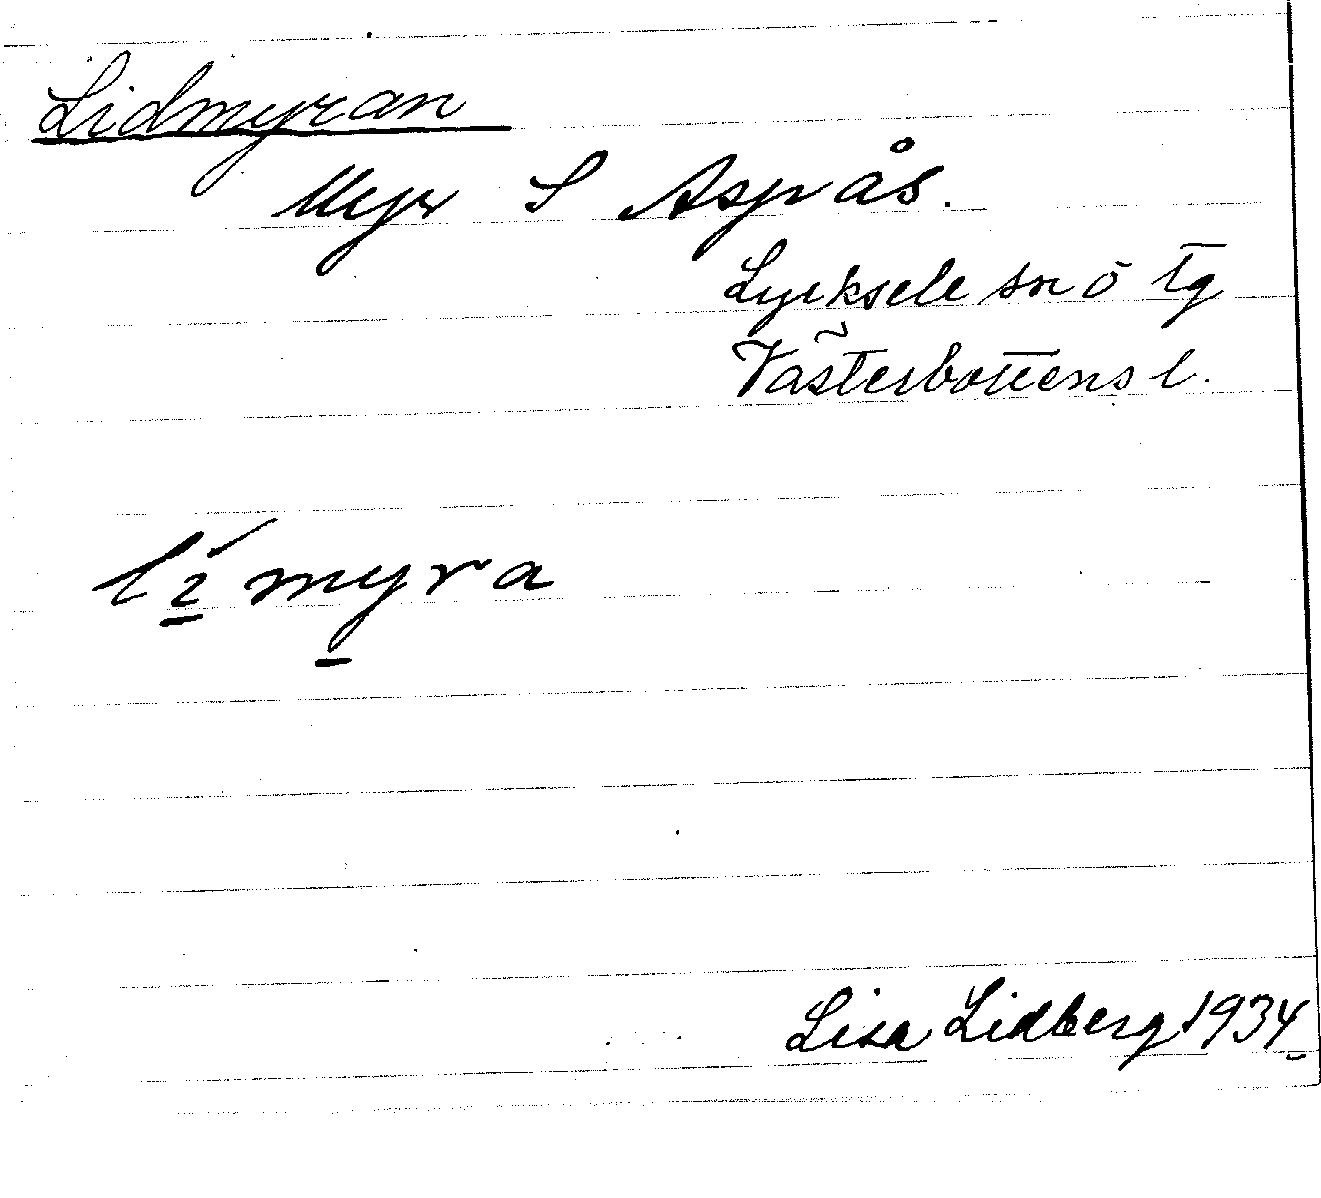 Lidmyran
Myr S Aspås.
Lycksele sn o tg
Västerbottens l.
lí̱ my̱ra
Lisa Lidberg 1934